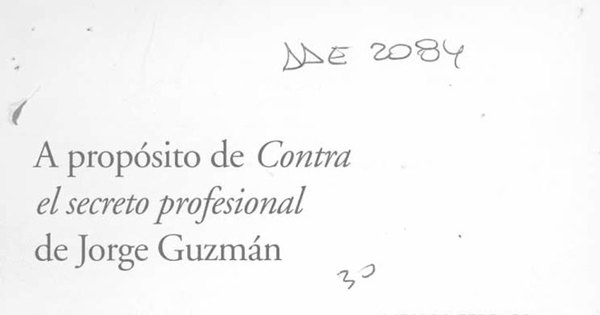 DDE 2084
A propósito de Contra
el secreto profesional
de Jorge Guzmán
30